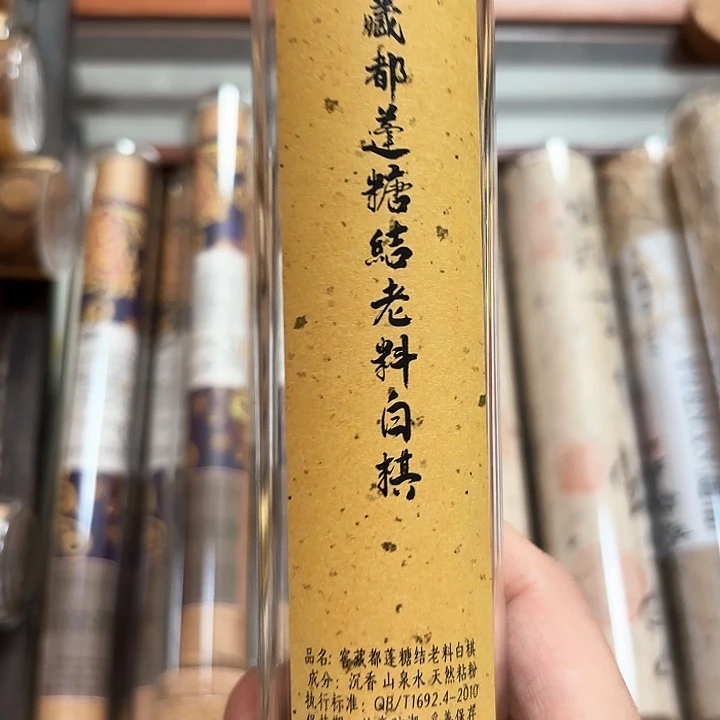 藏都蓬糖结老料白棋
品名：窖藏都蓬糖结老料白棋
成分：沉香 山泉水 天然粘粉
执行标准：QB/T1692.4-2010